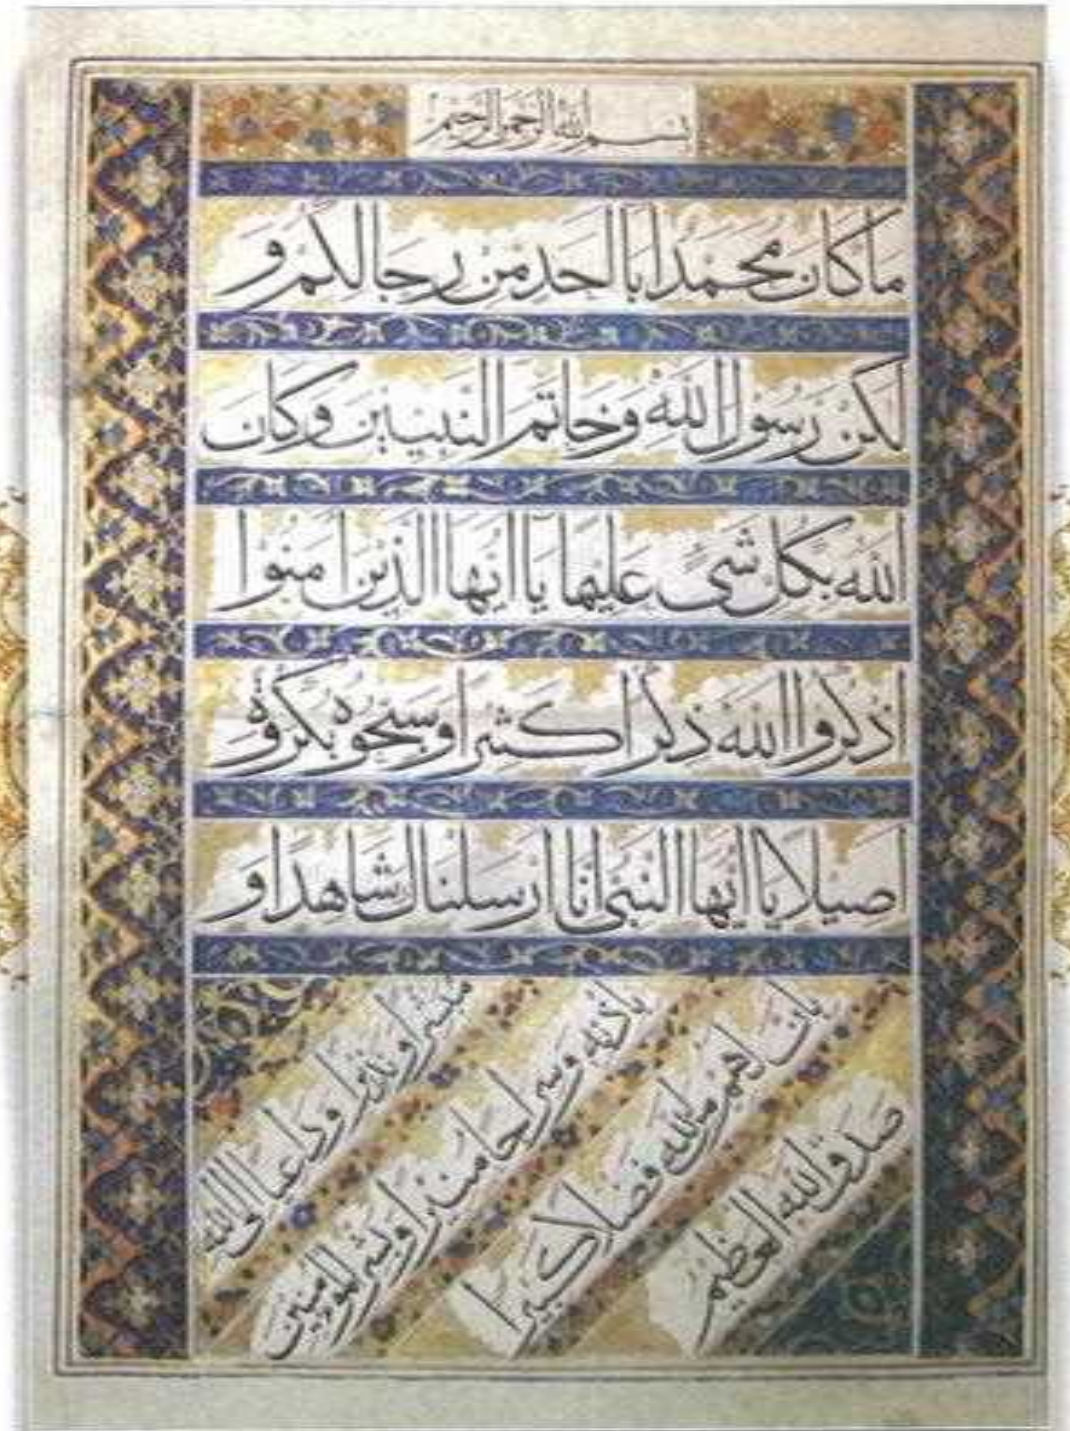 بسم الله الرحمن الرحيم
ما كان محمد ابا احد من رجالكم و
لكن رسول الله وخاتم النبيين وكان
الله بكل شئ عليما يا ايها الذين امنوا
اذكروا الله ذكرا كثيرا وسبحوه بكرة و
اصيلا يا ايها النبى انا ارسلناك شاهدا و
مبشرا و نذيرا وداعيا الى الله
باذنه وسراجا منيرا وبشر المؤمنين
بان لهم من الله فضلا كبيرا
صدق الله العظيم